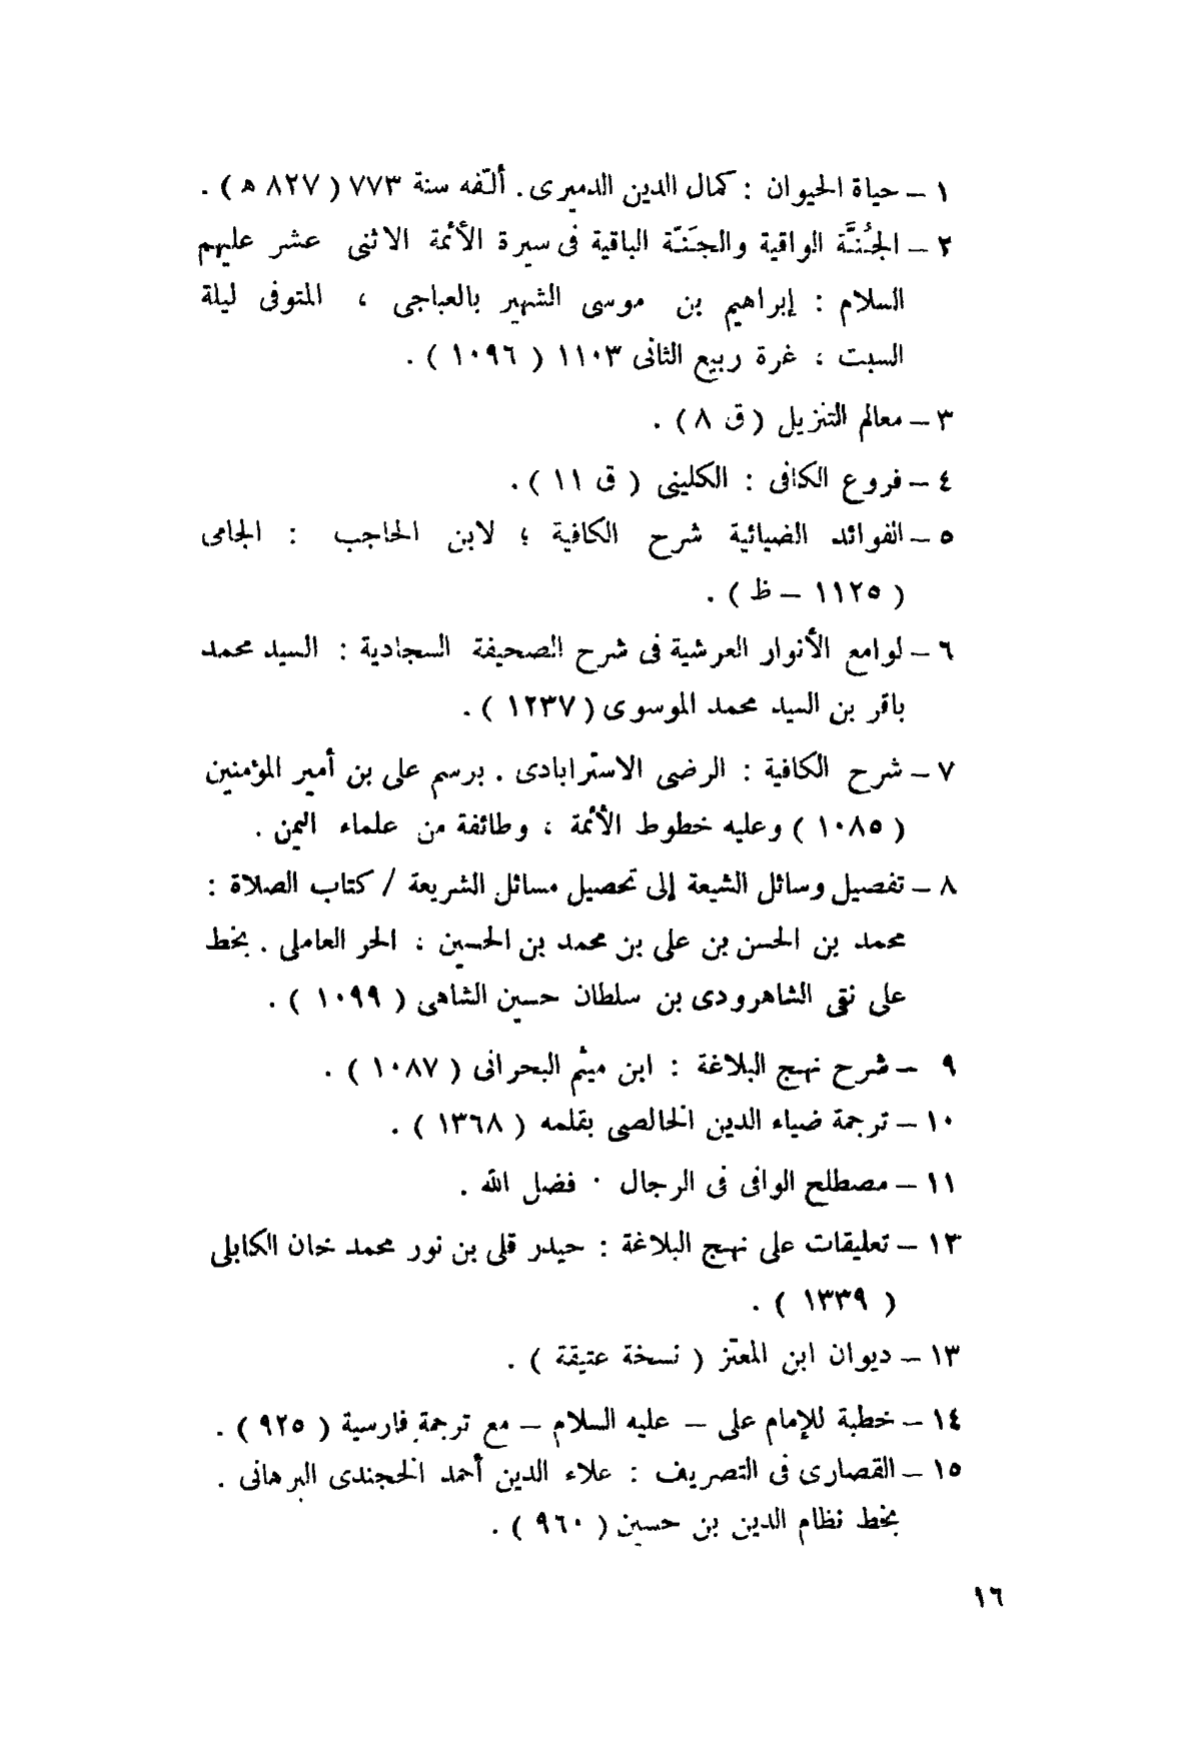 ١ – حياة الحيوان : كمال الدين الدميرى . ألّفه سنة ٧٧٣ ( ٨٢٧ ه ) .
٢ – الجُنَّة الواقية والجنَّة الباقية فى سيرة الأئمة الاثنى عشر عليهم
السلام : إبراهيم بن موسى الشهير بالعباجى ، المتوفى ليلة
السبت ، غرة ربيع الثانى ١١٠٣ ( ١٠٩٦ ) .
٣ – معالم التنزيل ( ق ٨ ) .
٤ – فروع الكافى : الكلينى ( ق ١١ ) .
٥ – الفوائد الضيائية شرح الكافية ؛ لابن الحاجب : الجامى
( ١١٢٥ – ظ ) .
٦ – لوامع الأنوار العرشية فى شرح الصحيفة السجادية : السيد محمد
باقر بن السيد محمد الموسوى ( ١٢٣٧ ) .
٧ – شرح الكافية : الرضى الاسترابادى . برسم على بن أمير المؤمنين
( ١٠٨٥ ) وعليه خطوط الأئمة ، وطائفة من علماء اليمن .
٨ – تفصيل وسائل الشيعة إلى تحصيل مسائل الشريعة / كتاب الصلاة :
محمد بن الحسن بن على بن محمد بن الحسين ، الحر العاملى . بخط
على نقى الشاهرودى بن سلطان حسين الشاهى ( ١٠٩٩ ) .
٩ – شرح نهج البلاغة : ابن ميثم البحرانى ( ١٠٨٧ ) .
١٠ – ترجمة ضياء الدين الخالصى بقلمه ( ١٣٦٨ ) .
١١ – مصطلح الوافى فى الرجال . فضل الله .
١٢ – تعليقات على نهج البلاغة : حيدر قلى بن نور محمد خان الكابلى
( ١٣٣٩ ) .
١٣ – ديوان ابن المعتز ( نسخة عتيقة ) .
١٤ – خطبة للإمام على – عليه السلام – مع ترجمة فارسية ( ٩٢٥ ) .
١٥ – القصارى فى التصريف : علاء الدين أحمد الخجندى البرهانى .
بخط نظام الدين بن حسين ( ٩٦٠ ) .
١٦